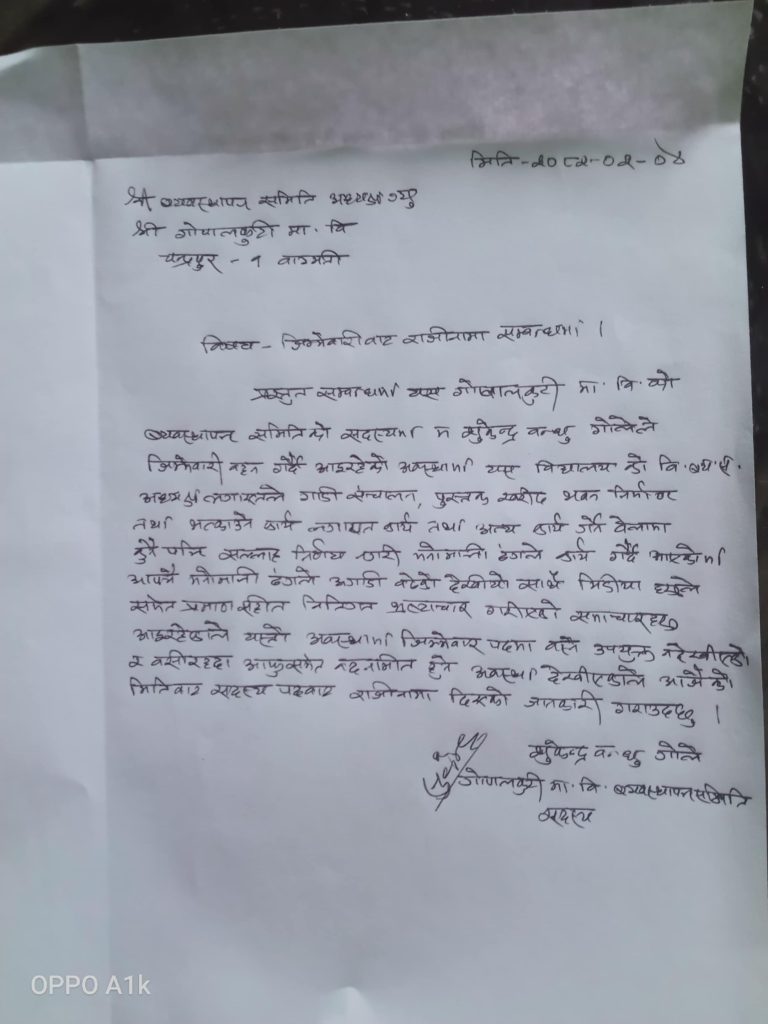 मिति-२०८२-०२-०४
श्री व्यवस्थापन समिति अध्यक्ष ज्यु
श्री गोपालकुटी मा. वि
चन्द्रपुर - १ वागमती
विषय - जिम्मेवारीवाट राजीनामा सम्वन्धमा ।
प्रस्तुत सम्वन्धमा यस गोपालकुटी मा. वि. को
व्यवस्थापन समितिको सदस्यमा म वन्धु गोलेले
जिम्मेवारी वहन गर्दै आइरहेको अवस्थामा यस विद्यालय को वि.
अध्यक्ष लगाएतले गाडी संचालन, पुस्तक खरीद भवन निर्माण
तथा भत्काउने कार्य लगाएत कार्य तथा अन्य कार्य गर्ने वेलामा
कुनै पनि सल्लाह निर्णय नगरी मनोमानी ढंगले कार्य गर्दै आएकोमा
आफ्नै मनोमानी ढंगले अगाडी वढेको देखीयो साथै मिडीया
समेत प्रमाण सहीत भ्रष्टाचार गरीएको समाचारहरु
आइरहेकाले यस्तो अवस्थामा जिम्मेवार पदमा वस्न उपयुक्त नदेखीएको
र वसीरहदा आफुसमेत वदनामीत हुने अवस्था देखीएकोले आजैको
मितिवाट सदस्य पदवाट राजीनामा दिएको जानकारी गराउदछु ।
वन्धु गोले
गोपालकुटी मा. वि. व्यवस्थापन समिति
सदस्य
OPPO A1k